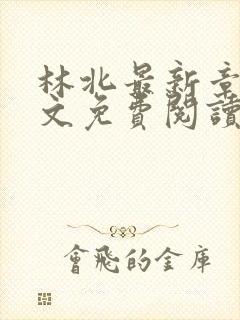 林北最新章
文免費閱讀
會飛的金庫